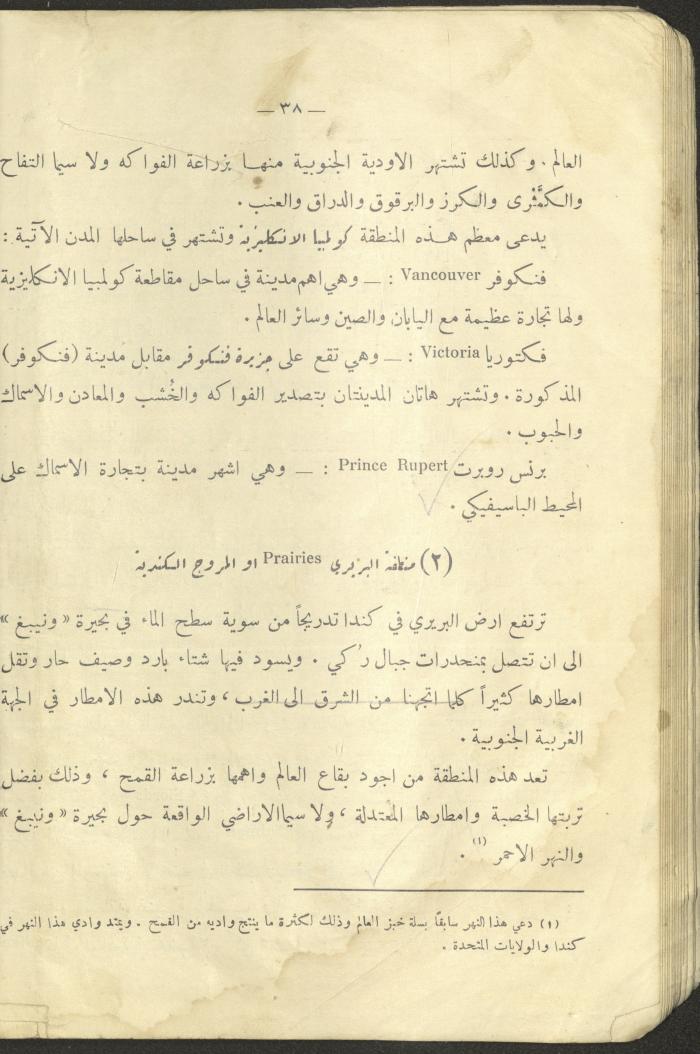 — ٣٨ —
العالم . وكذلك تشتهر الاودية الجنوبية منهـا بزراعة الفواكه ولا سيما التفاح
والكمَّثرى والكرز والبرقوق والدراق والعنب .
يدعى معظم هـذه المنطقة كولمبيا الانكليزية وتشتهر في ساحلها المدن الآتية :
فنكوفر Vancouver : — وهي اهم مدينة في ساحل مقاطعة كولمبيا الانكليزية
ولها تجارة عظيمة مع اليابان والصين وسائر العالم .
فكتوريا Victoria : — وهي تقع على جزيرة فنكوفر مقابل مدينة (فنكوفر)
المذكورة . وتشتهر هاتان المدينتان بتصدير الفواكه والخُشب والمعادن والاسماك
والحبوب .
برنس روبرت Prince Rupert : — وهي اشهر مدينة بتجارة الاسماك على
المحيط الباسيفيكي .
(٢) منطقة البريري Prairies او المروج الكندية
ترتفع ارض البريري في كندا تدريجاً من سوية سطح الماء في بحيرة « ونيبغ »
الى ان تتصل بمنحدرات جبال رُكي . ويسود فيها شتاء بارد وصيف حار وتقل
امطارها كثيراً كلما اتجهنا من الشرق الى الغرب ، وتندر هذه الامطار في الجهة
الغربية الجنوبية .
تعد هذه المنطقة من اجود بقاع العالم واهمها بزراعة القمح ، وذلك بفضل
تربتها الخصبة وامطارها المعتدلة ، ولا سيما الاراضي الواقعة حول بحيرة « ونيبغ »
والنهر الاحمر (١) .
(١) دعي هذا النهر سابقاً بسلة خبز العالم وذلك لكثرة ما ينتج واديه من القمح . ويمتد وادي هذا النهر في
كندا والولايات المتحدة .